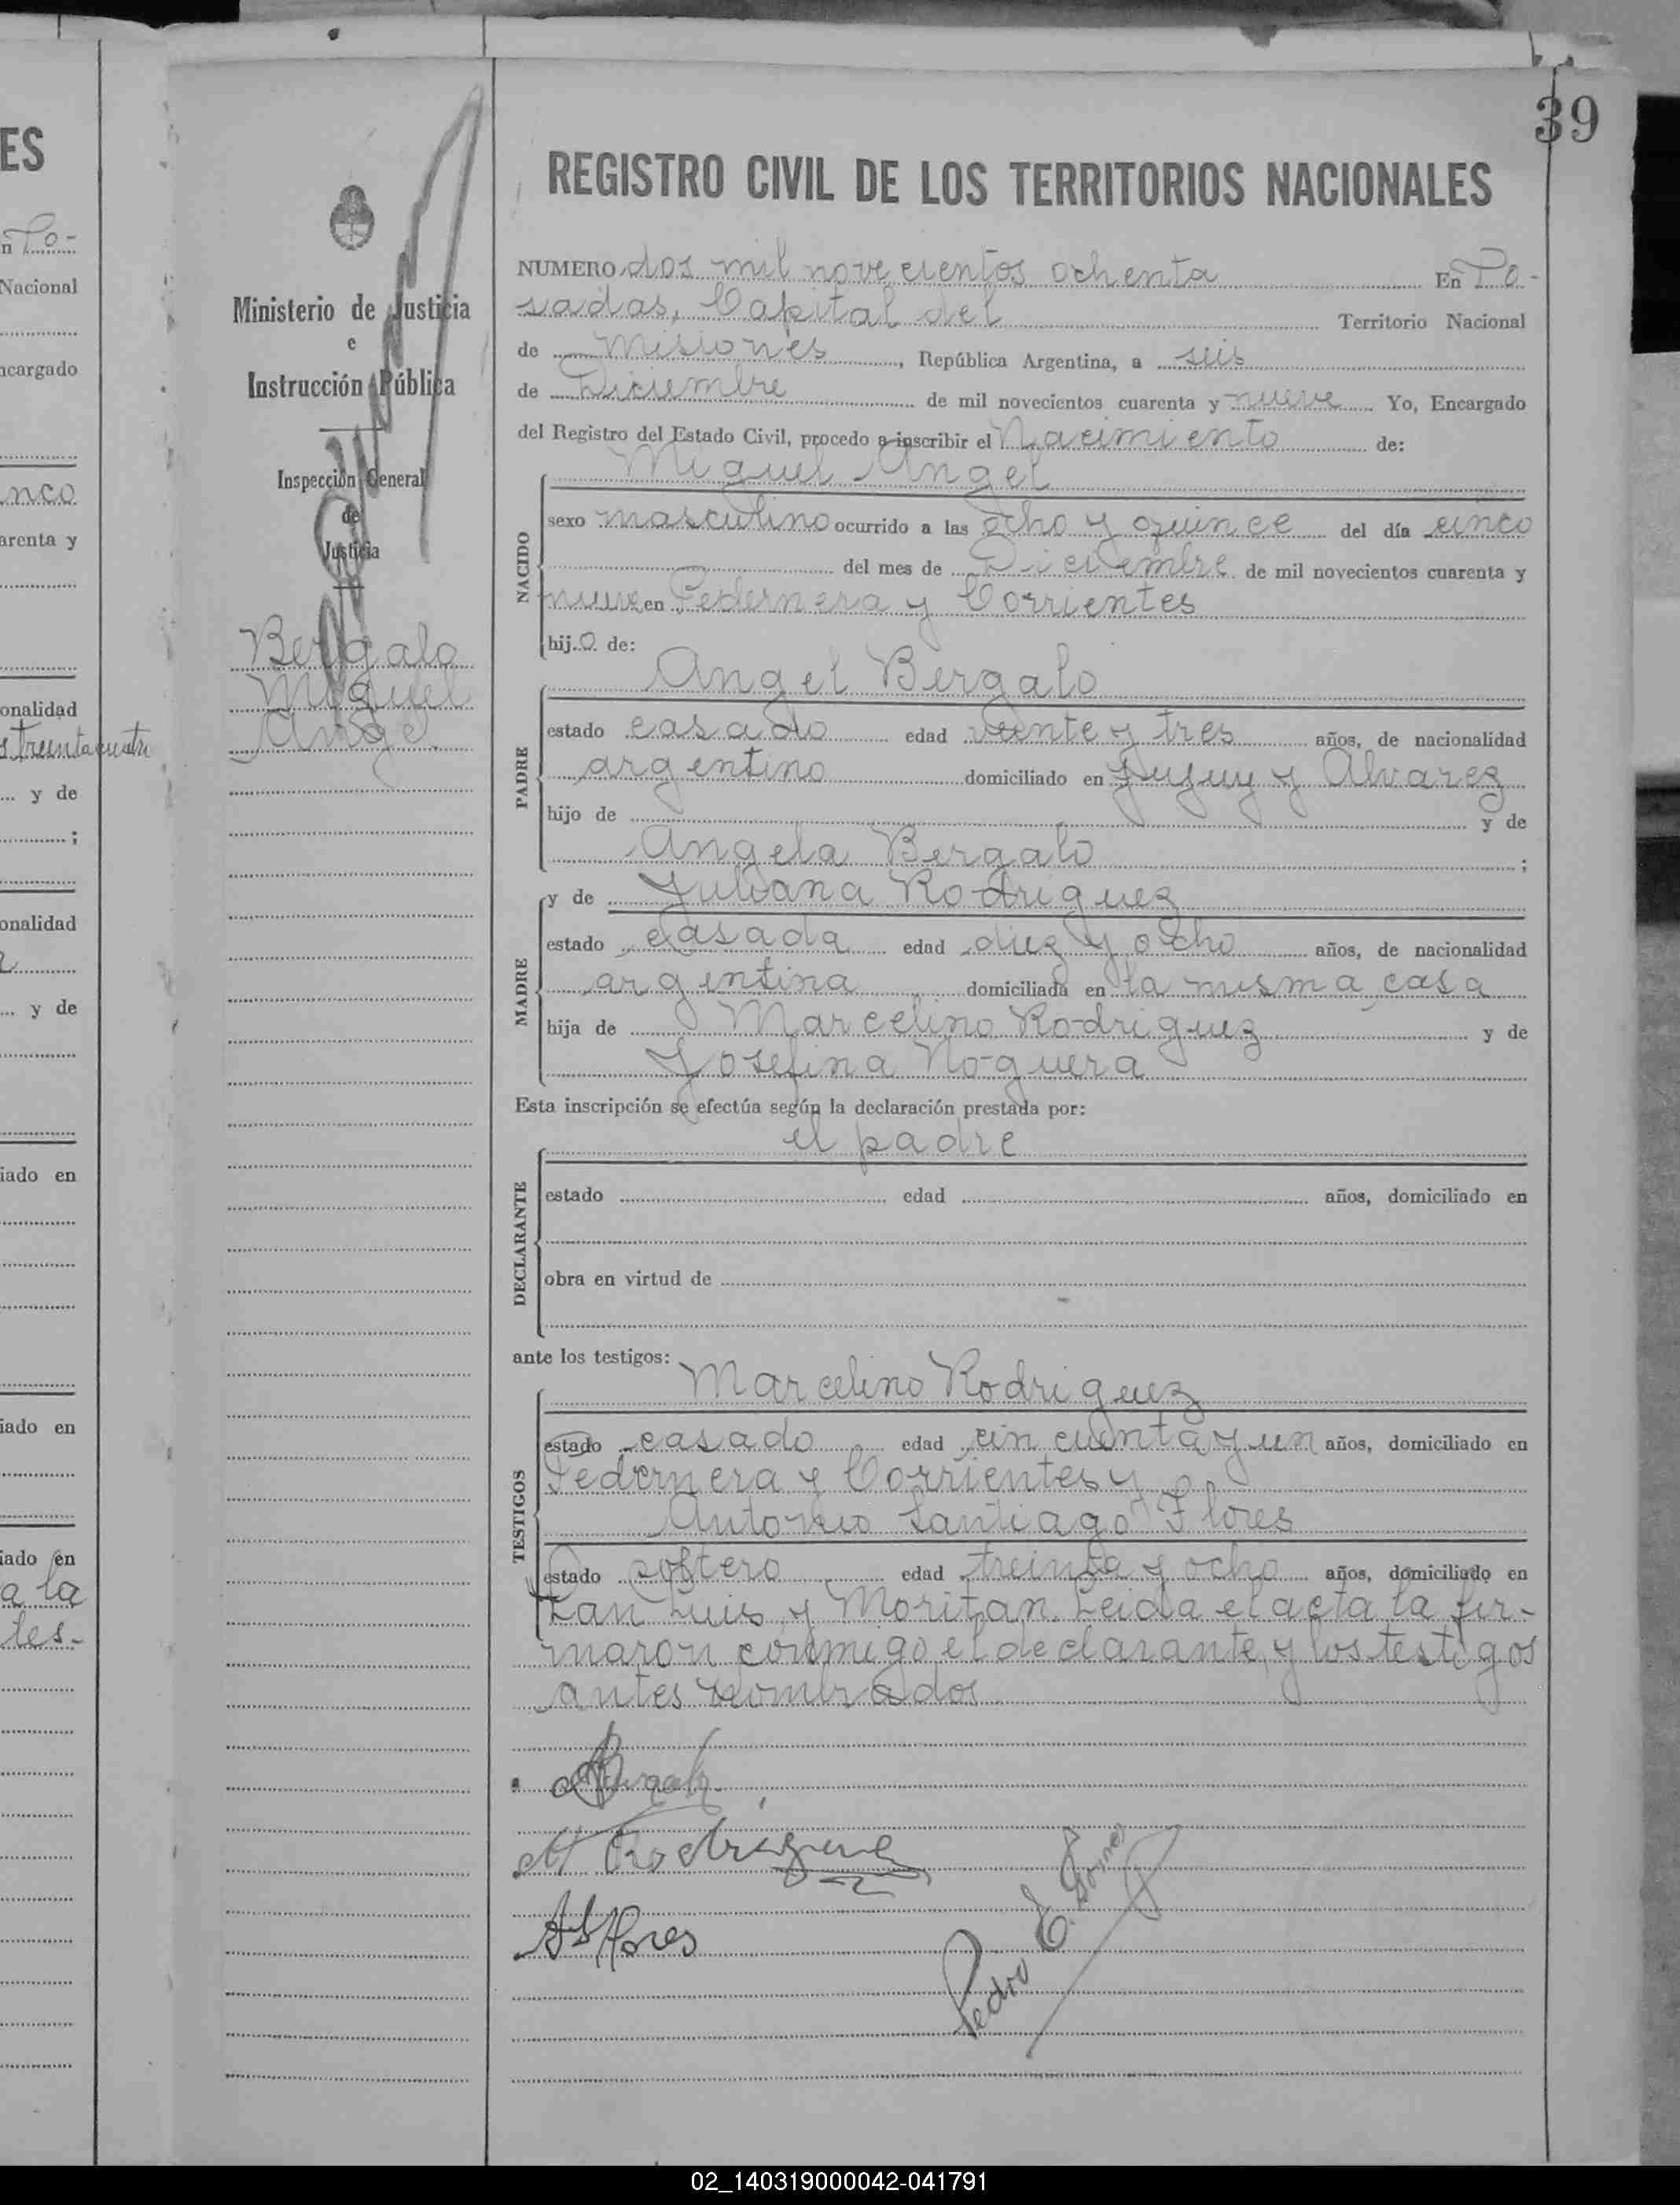 39
ES
REGISTRO CIVIL DE LOS TERRITORIOS NACIONALES
Ministerio de Justicia
e
Instrucción Pública
Inspección General
de
Justicia
Bergalo
Miguel
Angel
NUMERO dos mil novecientos ochenta En Po-
sadas, Capital del Territorio Nacional
de Misiones, República Argentina, a seis
de Diciembre de mil novecientos cuarenta y nueve Yo, Encargado
del Registro del Estado Civil, procedo a inscribir el Nacimiento de:
NACIDO
Miguel Angel
sexo masculino ocurrido a las ocho y quince del día cinco
del mes de Diciembre de mil novecientos cuarenta y
nueve en Pedernera y Corrientes
hijo de:
PADRE
Angel Bergalo
estado casado edad veinte y tres años, de nacionalidad
argentino domiciliado en Jujuy y Alvarez
hijo de y de
Angela Bergalo ;
MADRE
y de Juliana Rodriguez
estado casada edad diez y ocho años, de nacionalidad
argentina domiciliada en la misma casa
hija de Marcelino Rodriguez y de
Josefina Noguera
Esta inscripción se efectúa según la declaración prestada por:
el padre
DECLARANTE
estado edad años, domiciliado en
obra en virtud de
ante los testigos:
TESTIGOS
Marcelino Rodriguez
estado casado edad cincuenta y un años, domiciliado en
Pedernera y Corrientes y
Antonio Santiago Flores
estado soltero edad treinta y ocho años, domiciliado en
San Luis y Moritan. Leida el acta la fir-
maron conmigo el declarante, y los testigos
antes nombrados
M Rodriguez
AS Flores
Pedro E. Gomez
n Po-
Nacional
ncargado
nco
arenta y
onalidad
treinta cuatro
y de
;
onalidad
y de
iado en
iado en
iado en
a la
tes-
02_140319000042-041791